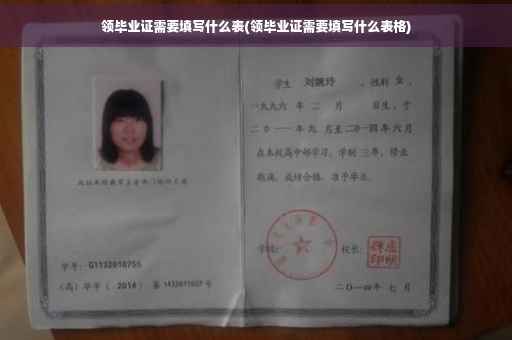 领毕业证需要填写什么表(领毕业证需要填写什么表格)
学生 刘婉玲 ，性别 女 ，
一九九六 年 二 月 日生，于
二〇一一 年 九 月至 二〇一四 年 六 月
在本校高中部学习，学制 三 年，修业
期满，成绩合格，准予毕业。
学号：G1132010755
(高) 毕字 ( 2014 ) 第 1432011027 号
学校：
校长：
二〇一四年 七 月